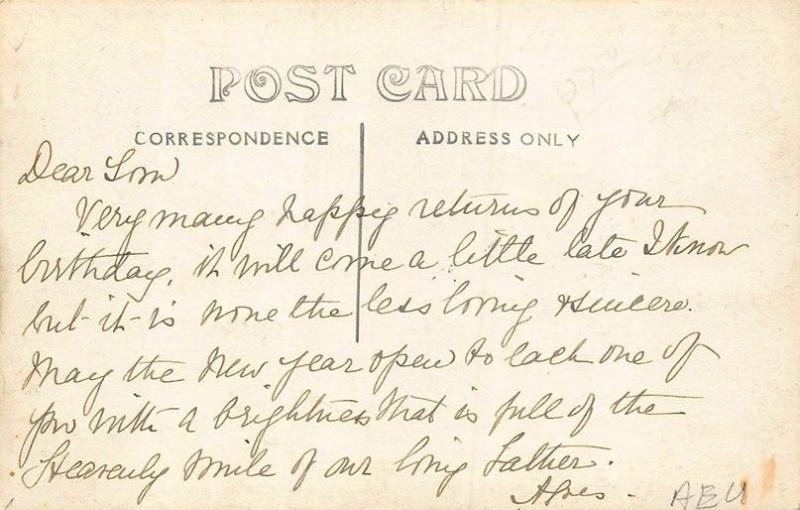 POST CARD
CORRESPONDENCE ADDRESS ONLY
Dear
Very many happy returns of your
birthday, it will come a little late I know
but it is none the less loving & sincere.
May the New Year open to each one of
you with a brightness that is full of the
Heavenly smile of our loving Father.
AEU